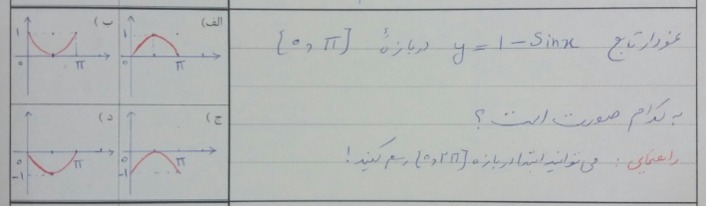 نمودار تابع y = 1 - Sinx در بازهٔ [0, π]
به کدام صورت است؟
راهنمایی: می‌توانید ابتدا در بازه [0, 2π] رسم کنید!
الف)
1
0
π
ب)
1
0
π
ج)
0
-1
π
د)
0
-1
π